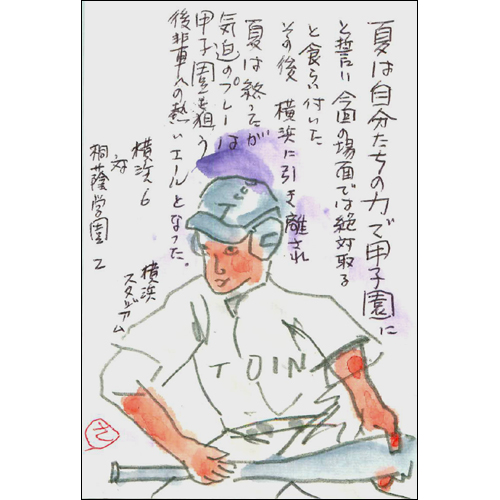 夏は自分たちの力で甲子園に
と誓い今回の場面では絶対取る
と食らい付いた
その後 横浜に引き離され
夏は終ったが
気迫のプレーは
甲子園を狙う
後輩への熱いエールとなった。
横浜6
対
桐蔭学園2
横浜
スタジアム
TOIN